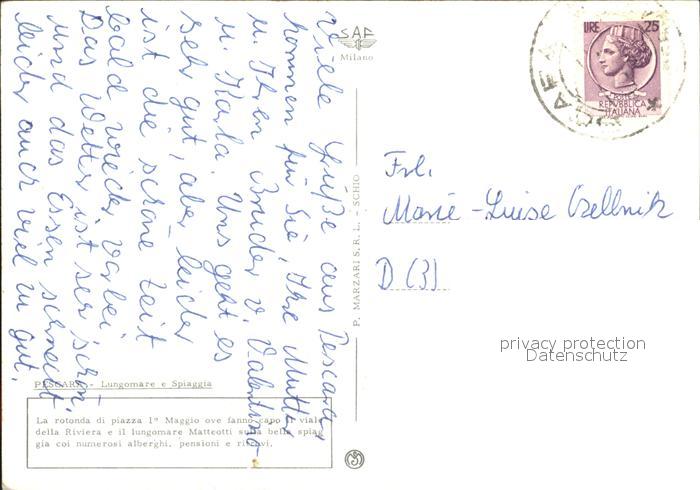 Viele Grüße aus Pescara
kommen für Sie, Ihre Mutter
u. Ihren Bruder v. Valentino
u. Karla. Uns geht es
sehr gut, aber leider
ist die schöne Zeit
bald wieder vorbei.
Das Wetter ist sehr schön
und das Essen schmeckt
leider auch viel zu gut.
SAF
Milano
P. MARZARI S.R.L. - SCHIO
LIRE 25
REPUBBLICA
ITALIANA
Frl.
Marie-Luise
D (B)
privacy protection
Datenschutz
PESCARA - Lungomare e Spiaggia
La rotonda di piazza 1º Maggio ove fanno capo il viale
della Riviera e il lungomare Matteotti sulla bella spiag
gia coi numerosi alberghi, pensioni e ritrovi.